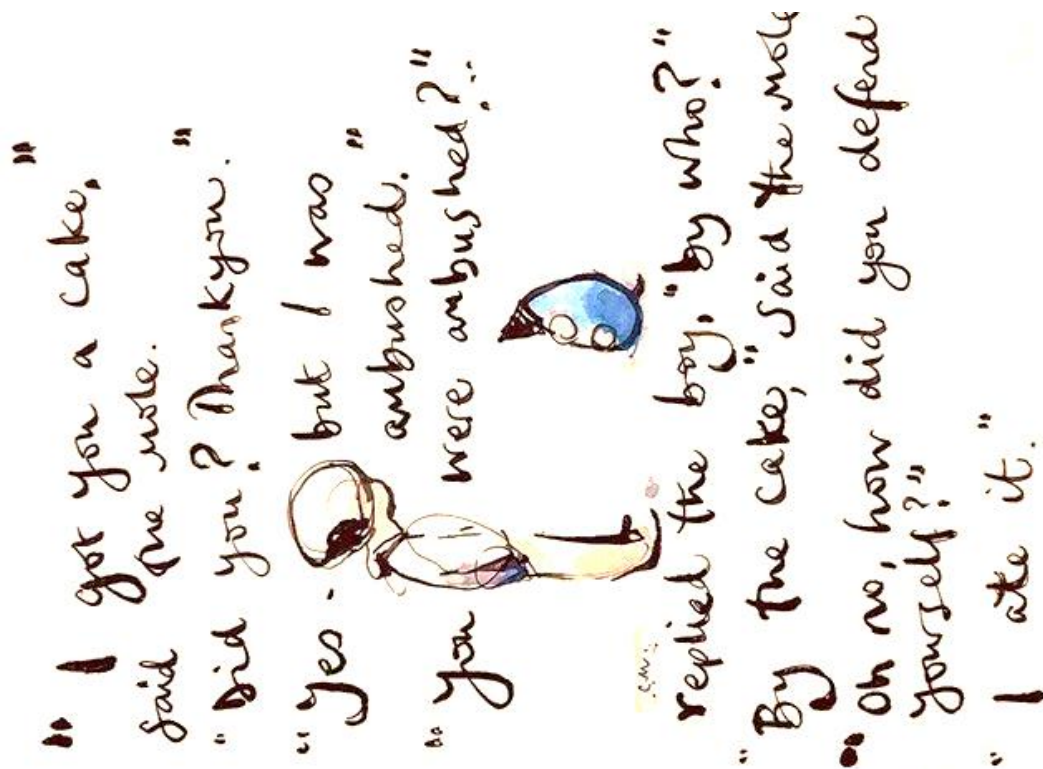 "I got you a cake,"
said the mole.
"Did you? Thankyou."
"Yes - but I was
ambushed."
"You were ambushed?"
replied the boy, "by who?"
"By the cake," said the mole
"Oh no, how did you defend
yourself?"
"I ate it."